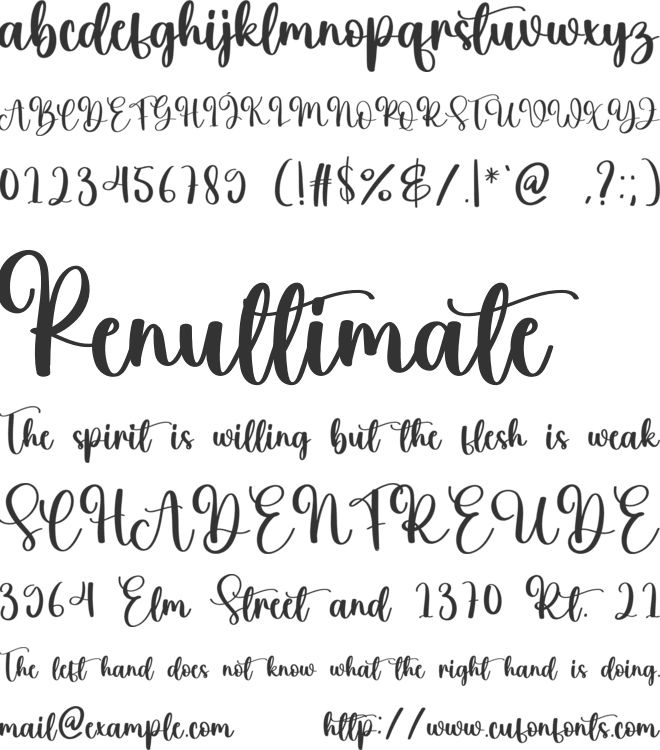 abcdefghijklmnopqrstuvwxyz
ABCDEFGHIJKLMNOPQRSTUVWXYZ
0123456789 (!#$%&/.|*'@ ,?:;)
Renultimate
The spirit is willing but the flesh is weak
SCHADENFREUDE
3964 Elm Street and 1370 Rt. 21
The left hand does not know what the right hand is doing.
mail@example.com http://www.cufonfonts.com